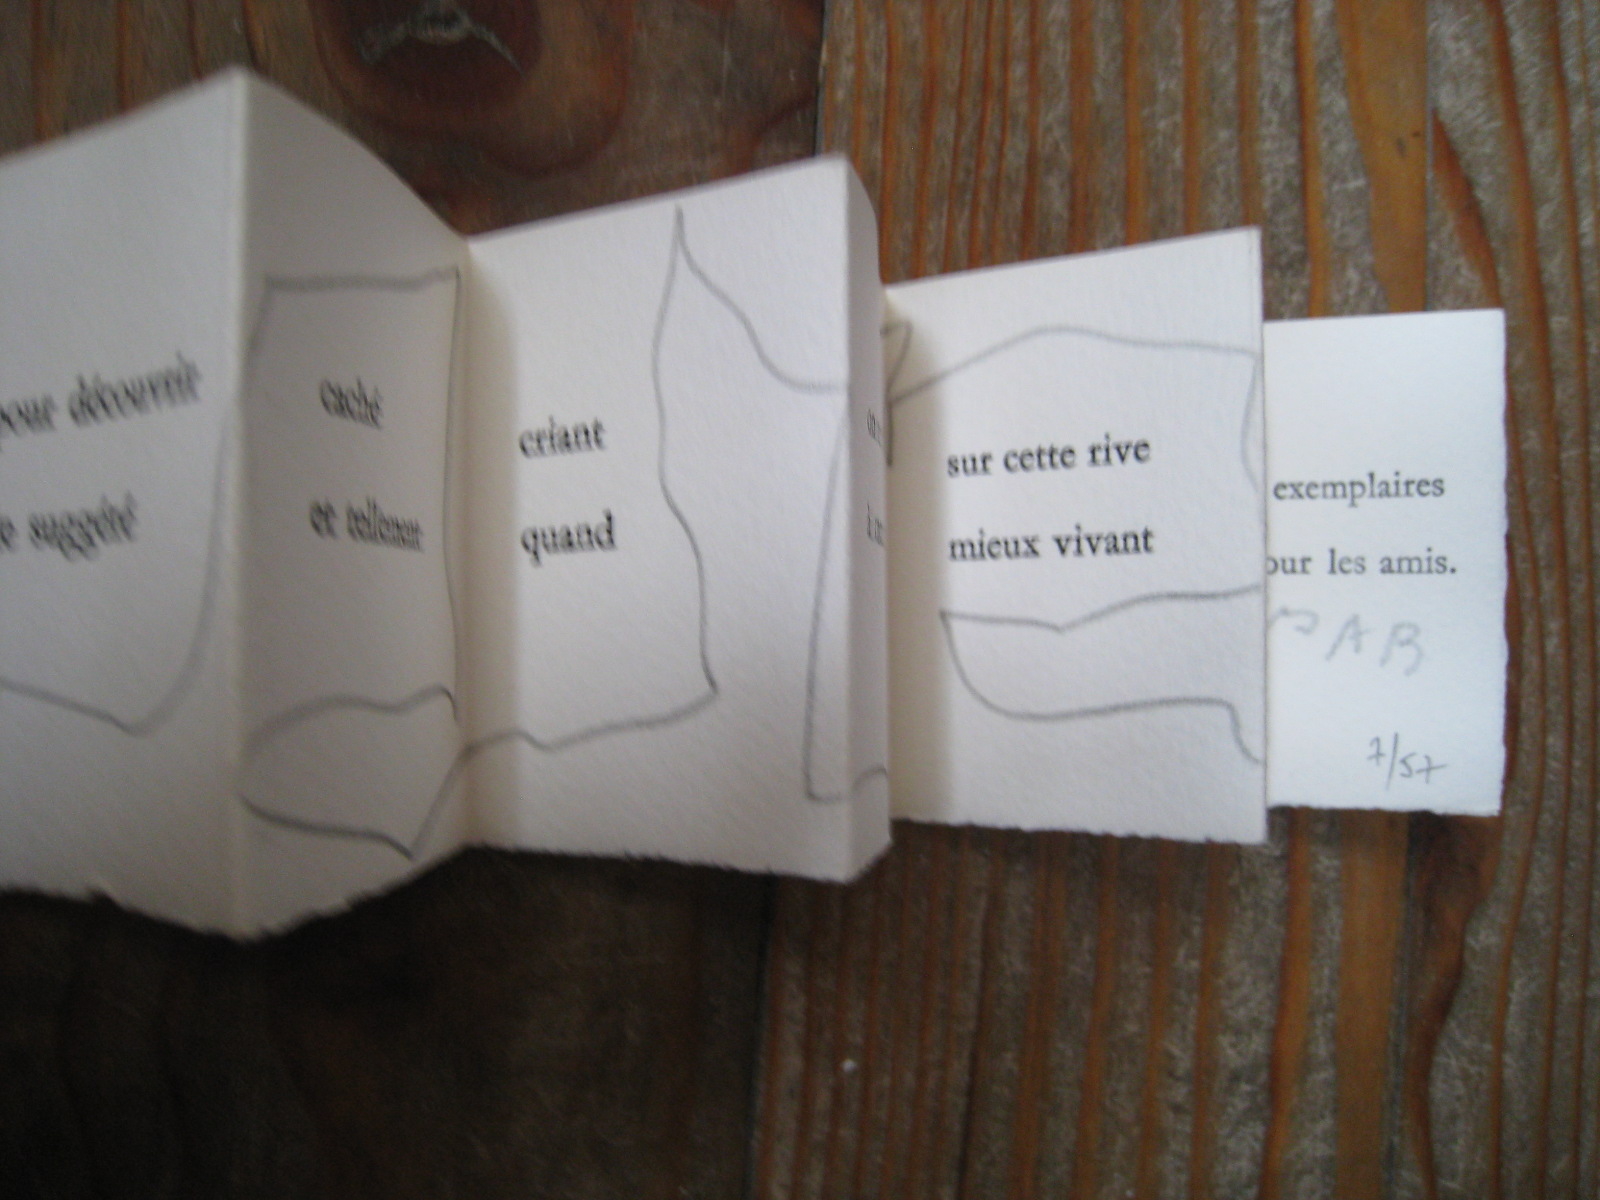 pour découvrir
suggéré
caché
et tellement
criant
quand
sur cette rive
mieux vivant
exemplaires
our les amis.
AB
7/57